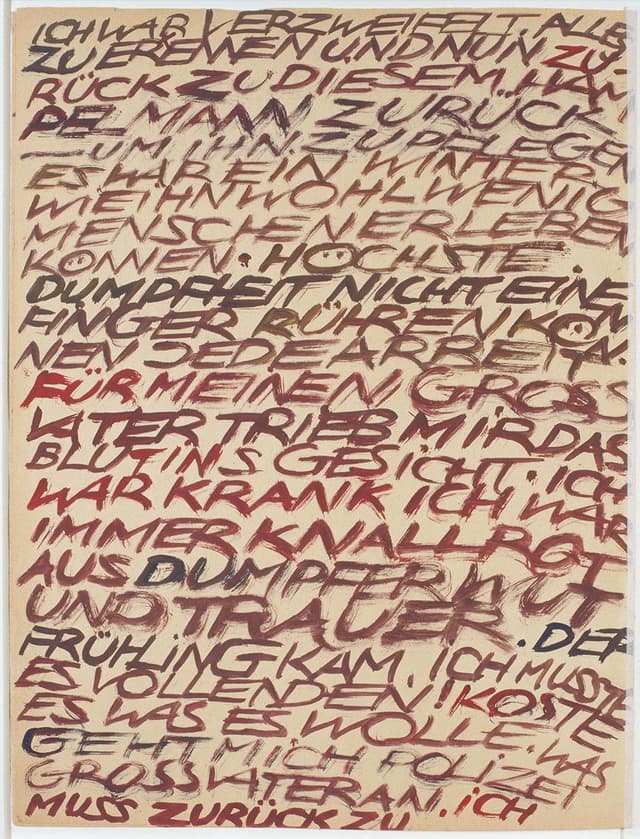 ICH WAR VERZWEIFELT. ALLES
ZU EREWEN UND NUN ZU-
RÜCK ZU DIESEM HAM
PEL MANN ZURÜCK
UM IHN ZU PFLEGEN
ES WAR EIN WINTER
WIE IHN WOHL WENIG
MENSCHEN ERLEBEN
KONNEN. HÖCHSTE
DUMPFHEIT NICHT EINEN
FINGER RÜHREN KÖN
NEN JEDE ARBEIT.
FÜR MEINEN GROSS
VATER TRIEB MIR DAS
BLUT INS GESICHT. ICH
WAR KRANK ICH WAR
IMMER KNALLROT
AUS DUMPFER WUT
UND TRAUER. DER
FRÜHLING KAM, ICH MUSSTE
ES VOLLENDEN! KOSTE
ES WAS ES WOLLE. WAS
GEHT MICH POLIZEI
GROSSVATER AN. ICH
MUSS ZURÜCK ZU